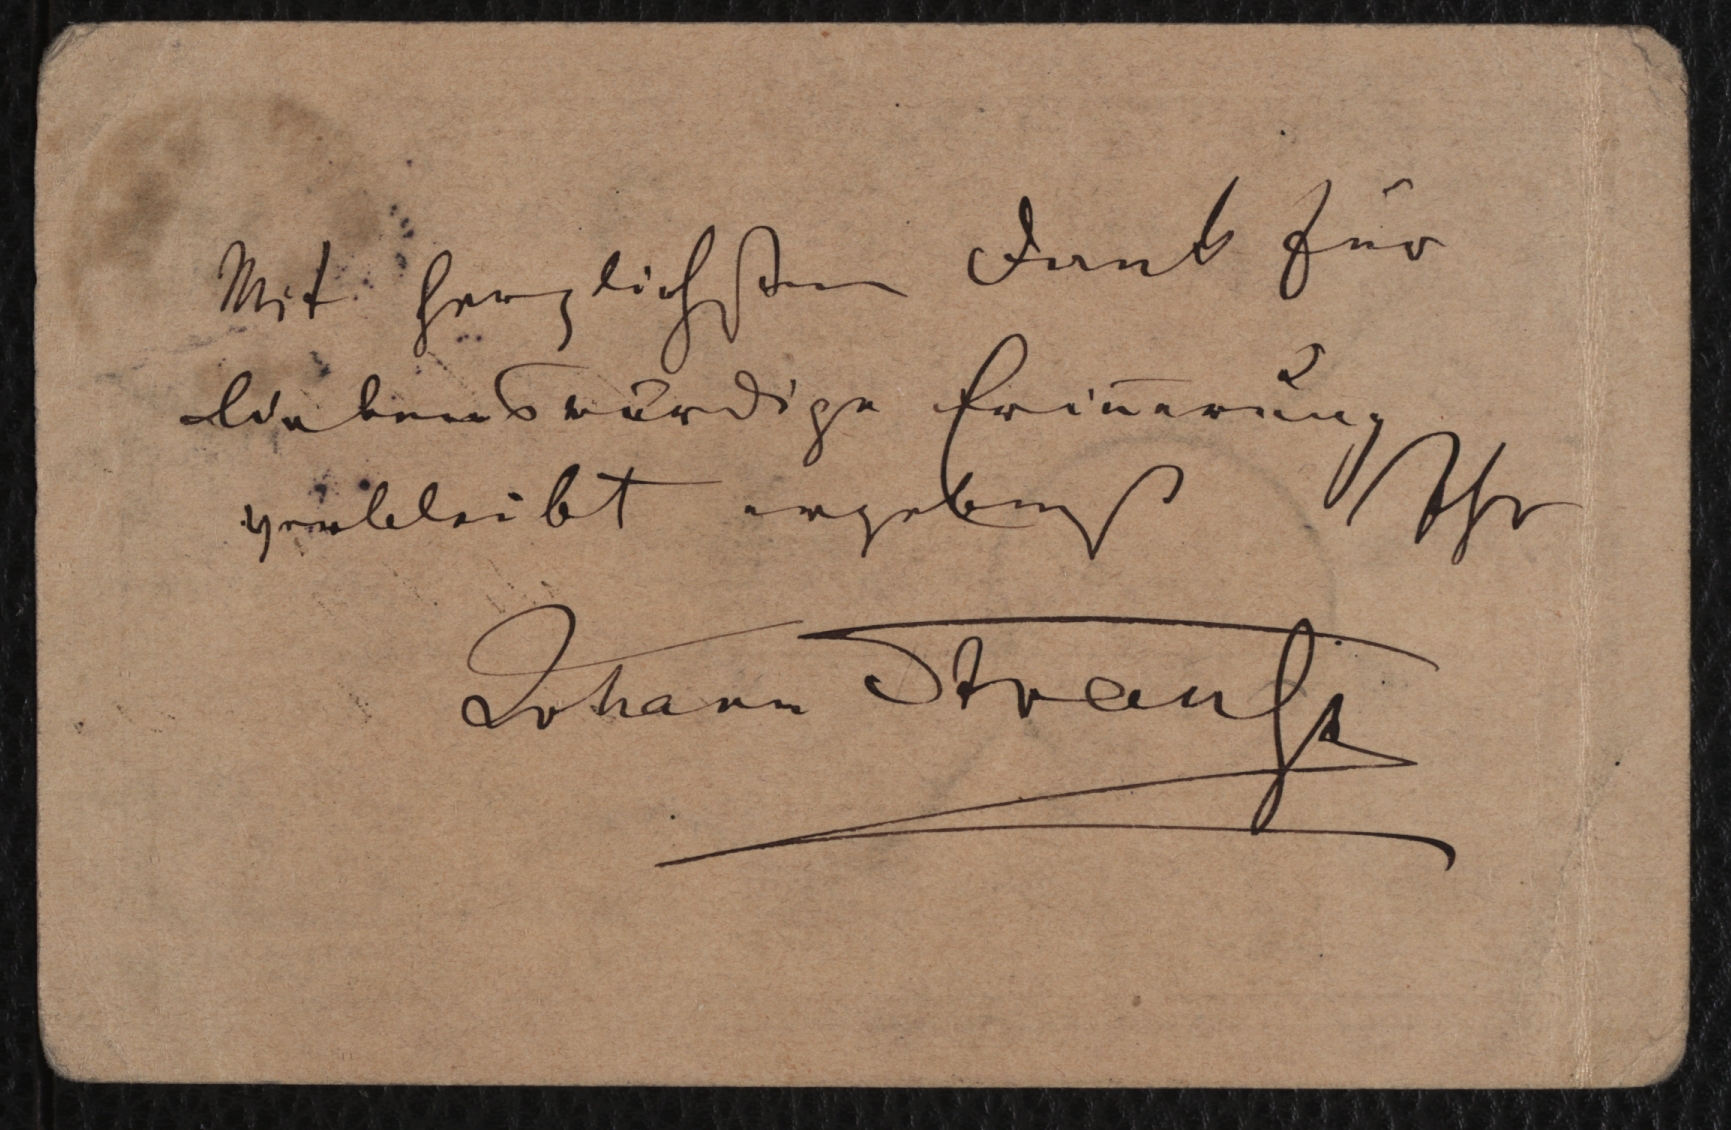 Mit herzlichstem Dank für
liebenswürdige Erin̄erung
verbleibt ergebenst Ihr
Johann Strauß